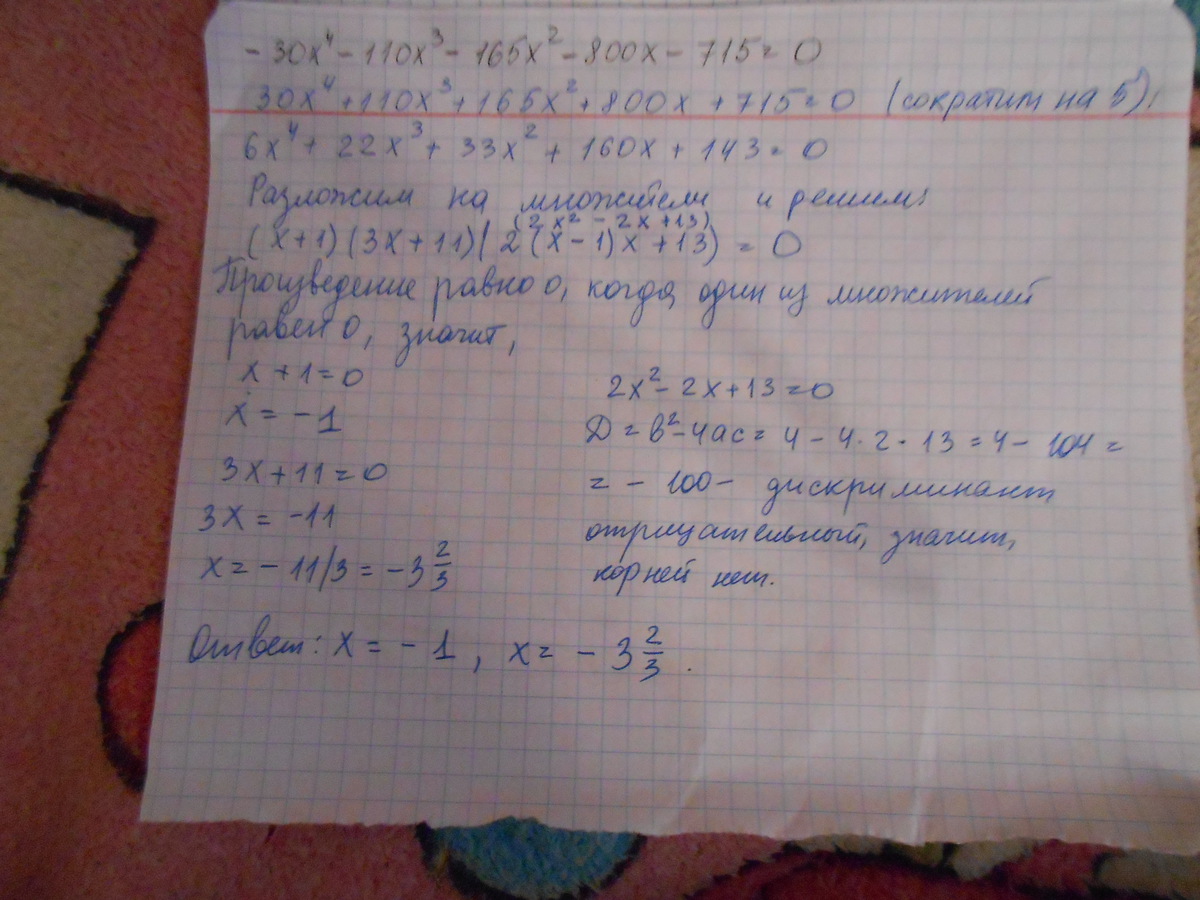 - 30x⁴ - 110x³ - 165x² - 800x - 715 = 0
30x⁴ + 110x³ + 165x² + 800x + 715 = 0 (сократим на 5):
6x⁴ + 22x³ + 33x² + 160x + 143 = 0
Разложим на множители и решим:
(2x² - 2x + 13)
(x+1)(3x+11)(2(x-1)x+13) = 0
Произведение равно 0, когда один из множителей
равен 0, значит,
x + 1 = 0
x = -1
3x + 11 = 0
3x = -11
x = - 11/3 = -3 2/3
2x² - 2x + 13 = 0
D = b² - 4ac = 4 - 4·2·13 = 4 - 104 =
= - 100 - дискриминант
отрицательный, значит,
корней нет.
Ответ: x = - 1, x = - 3 2/3.